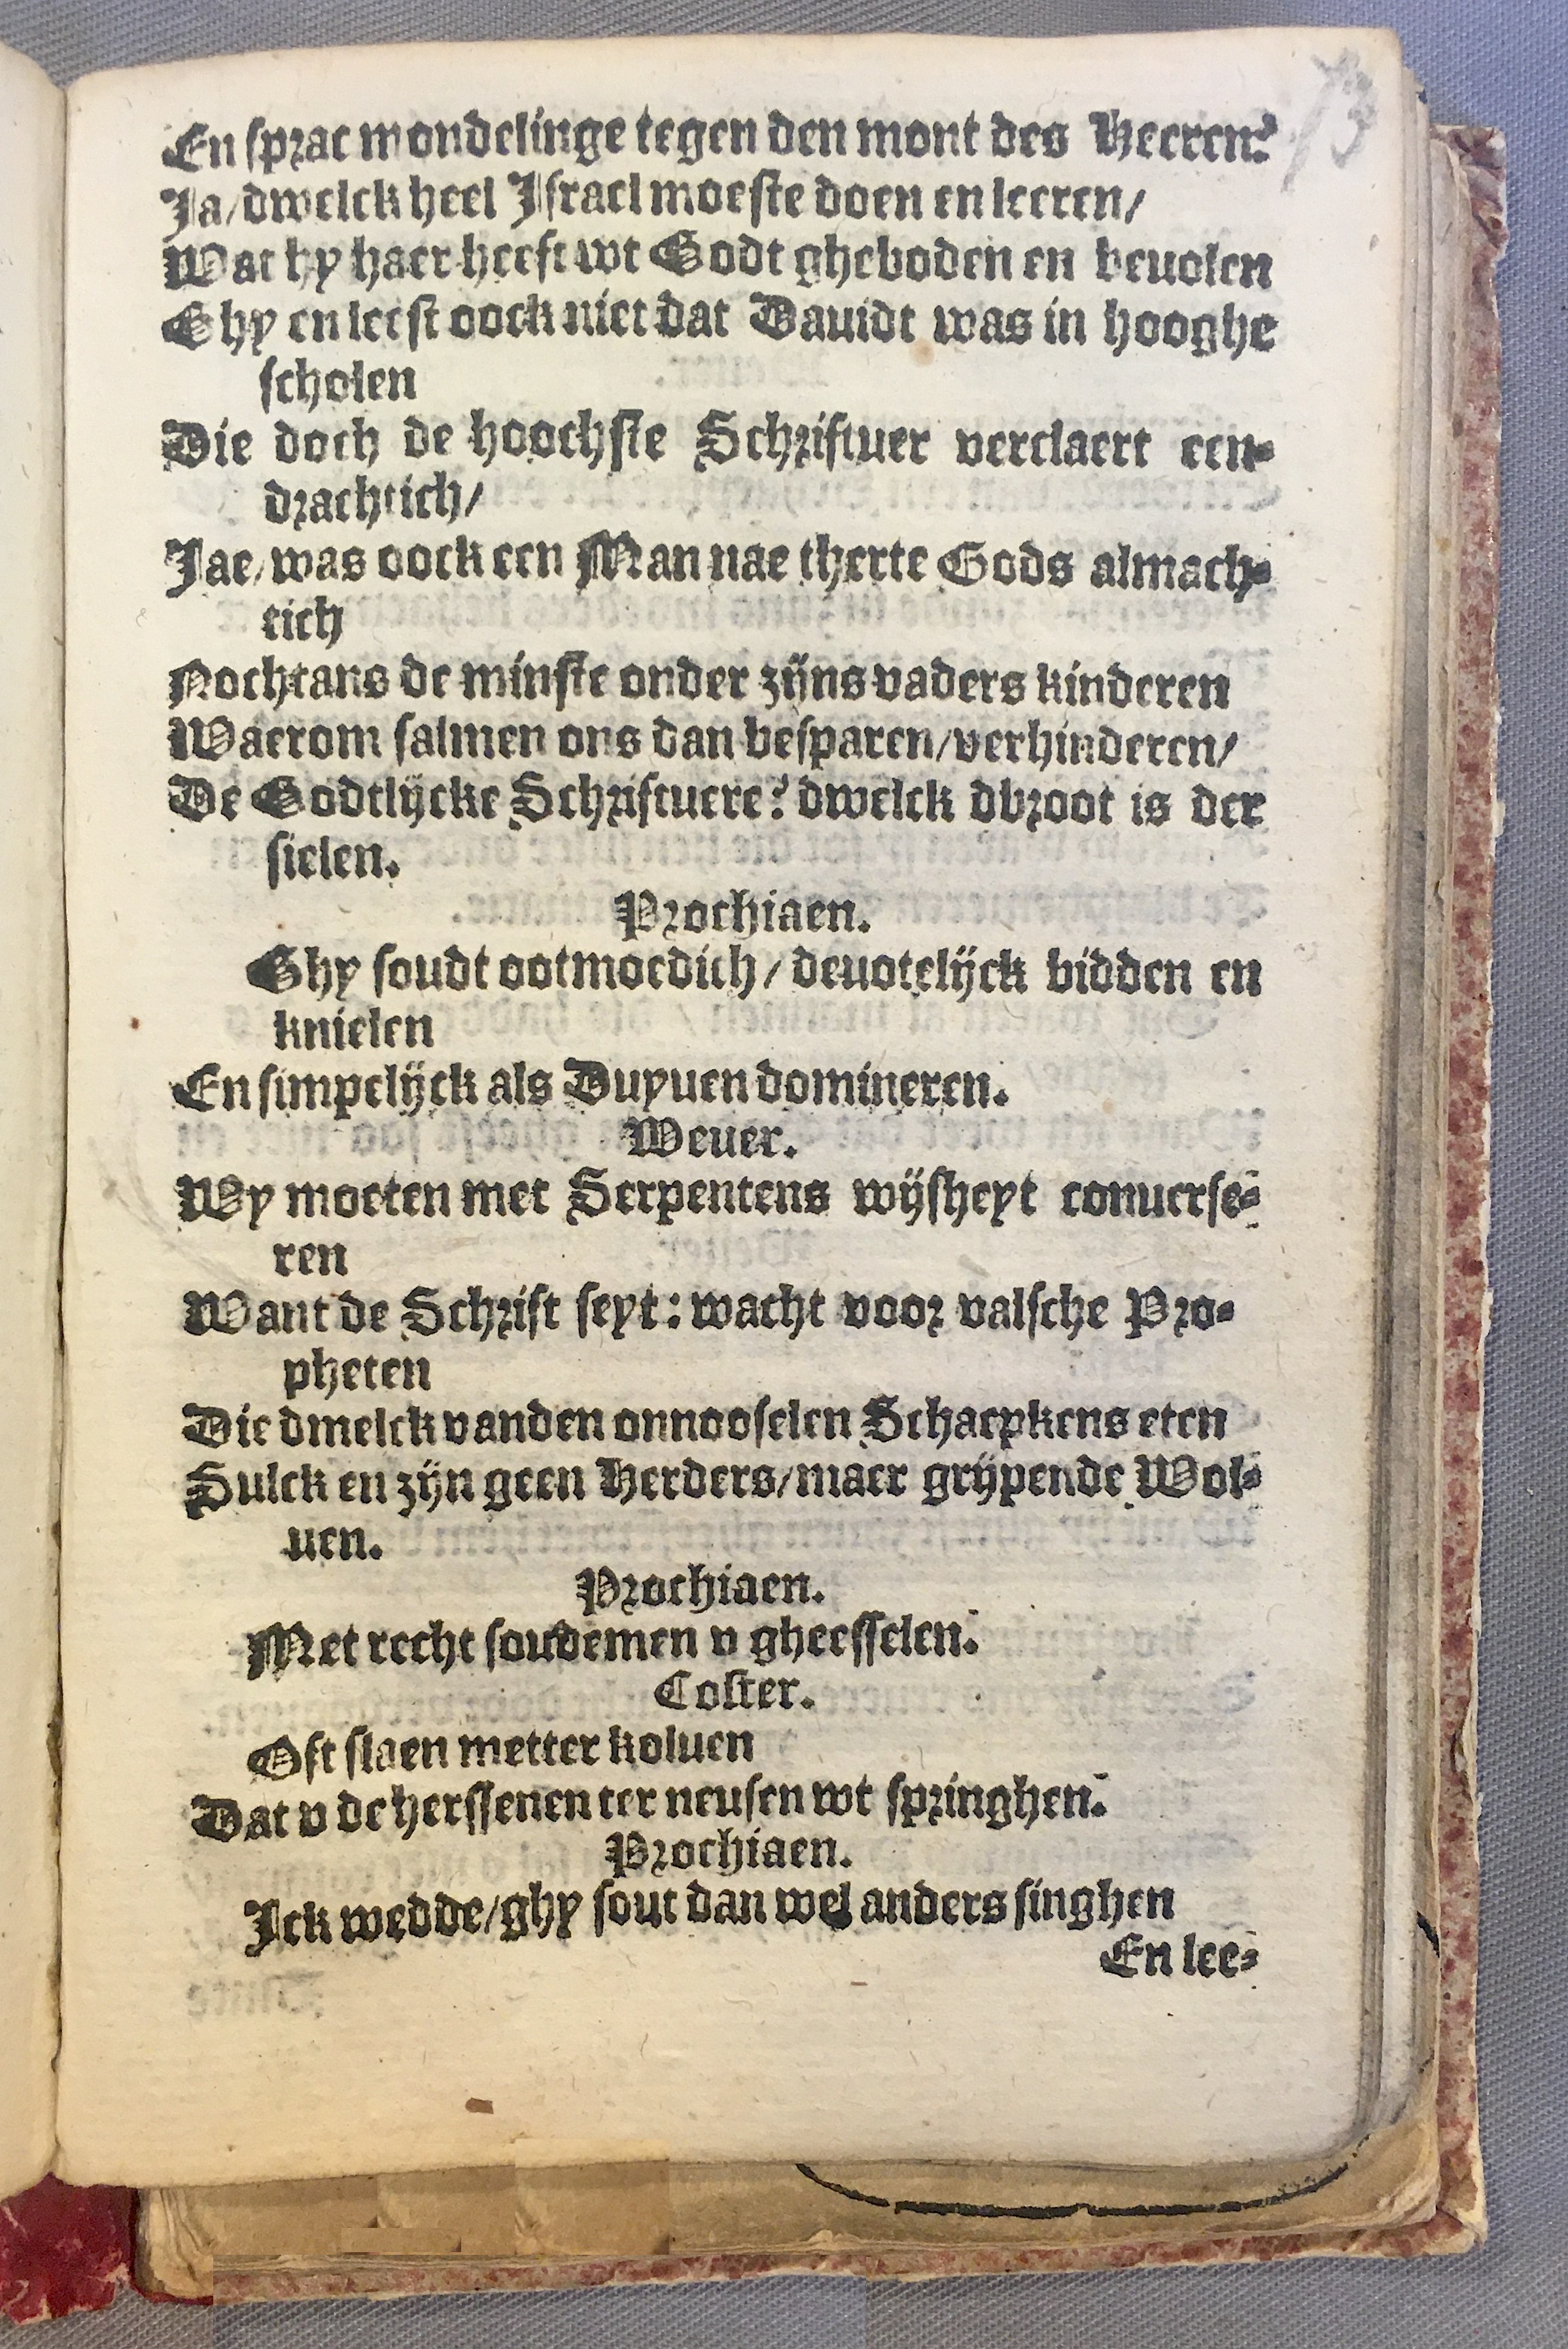 En sprac mondelinge tegen den mont des Heeren?
Ja/dwelck heel Israel moeste doen en leeren/
Wat hy haer heeft wt Godt gheboden en beuolen
Ghy en leest oock niet dat Dauidt was in hooghe
scholen
Die doch de hoochste Schriftuer verclaert een-
drachtich/
Jae/was oock een Man nae therte Gods almach-
tich
Nochtans de minste onder zijns vaders kinderen
Waerom salmen ons dan besparen/verhinderen/
De Godtlijcke Schriftuere? dwelck dbroot is der
sielen.
Prochiaen.
Ghy soudt ootmoedich/deuotelijck bidden en
knielen
En simpelijck als Duyuen domineren.
Weuer.
Wy moeten met Serpentens wijsheyt conuerse-
ren
Want de Schrift seyt: wacht voor valsche Pro-
pheten
Die dmelck vanden onnooselen Schaepkens eten
Sulck en zijn geen Herders/maer grijpende Wol-
uen.
Prochiaen.
Met recht soudemen v gheesselen.
Coster.
Oft slaen metter koluen
Dat v de herssenen ter neusen wt springhen.
Prochiaen.
Ick wedde/ghy sout dan wel anders singhen
En lee-